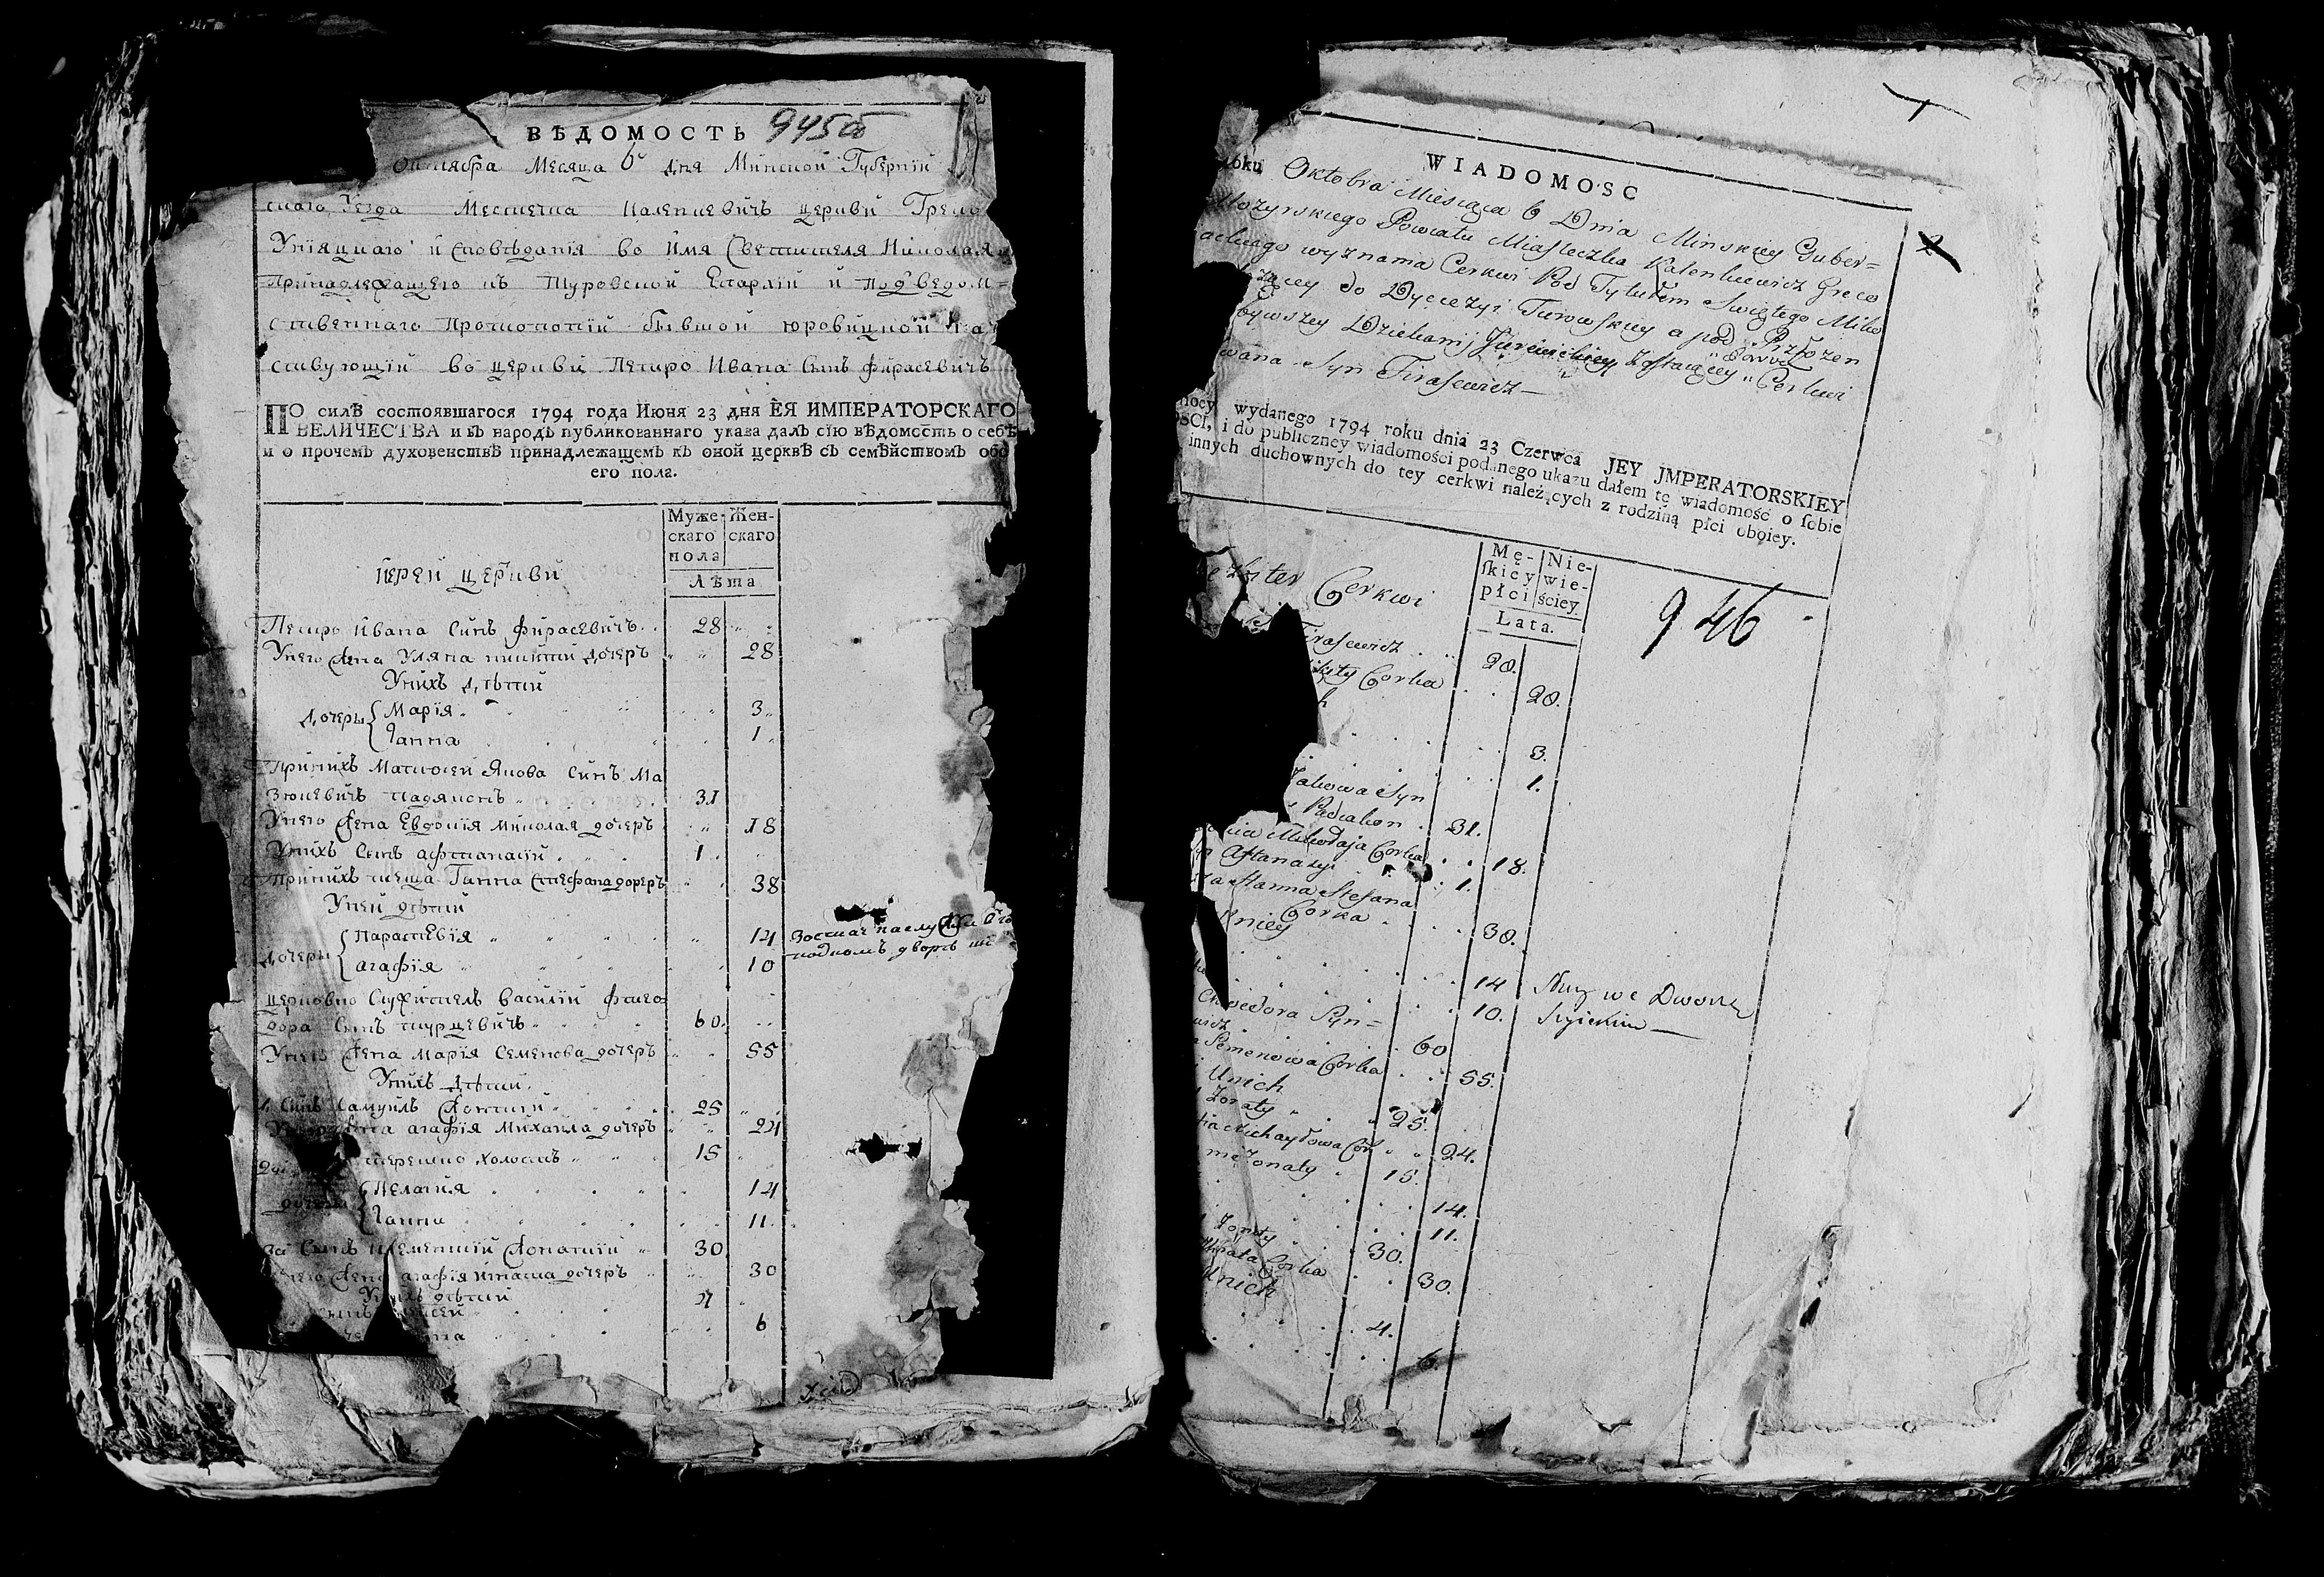 ВѢДОМОСТЬ 945
Октября Месяца 6 дня Минской Губернiй
скаго Уезда Местечка Каленкевичъ церкви Греко
Унiяцкаго исповѣданiя во Имя Светителя Николая
Принадлежащего къ Туровской Епархiй и подведом=
ственнаго Протопопiй бывшой юровицкой
ствующiй во церкви Петро Ивана Сынъ Фирасевичъ
ПО силѣ состоявшагося 1794 года Июня 23 дня ЕЯ ИМПЕРАТОРСКАГО
ВЕЛИЧЕСТВА и въ народъ публикованнаго указа далъ сїю вѣдомость о себѣ
и о прочемъ духовенствѣ принадлежащемъ къ оной церквѣ съ семѣйствомъ обо
его пола.
Муже- Жен-
скаго скаго
пола
Лѣта
Iерей церкви
Петръ Ивана Синъ Фирасевичъ 28
Унего жена Уляна никити дочеръ 28
Унихъ дѣтий
дочеры Марiя 3
Ганна 1
Принихъ Матфей Якова синъ Ма
зюкевичъ падяконъ 31
Унего жена Евдокiя Миколая дочеръ 18
Унихъ Сынъ афтанасiй 1
Принихъ теща Ганна Стефана дочеръ 38
Уней дѣтий
дочеры Параскевiя 14
агафiя 10
дворѣ
церковно Служитель василiй Фтео=
дора Сынъ турцевичъ 60
Унего жена Марiя Семенова дочеръ 55
Унихъ дѣтий
Синъ Самуилъ жонатий 25
жена агафiя Михаила дочеръ 24
терешко холостъ 15
дочеры Пелагiя 14
Ганна 11
Сынъ Клементiй жонатий 30
жена агафiя Игната дочеръ 30
Унихъ дѣтий
4
6
WIADOMOSC
roku Oktobra Miesiąca 6 Dnia Minskiey Guber=
Mozyrskiego Powiatu Miasteczka Kalenkiewicz Greco
ackiego wyznania Cerkwi Pod Tytułem Swiętego Miko
żącey do Dyecezyi Turowskiey a pod Przłozen
bywszey Dziekanij Jurewickiey zostaiącey Cerkwi
wana Syn Firasewicz—
mocy wydanego 1794 roku dnia 23 Czerwca JEY JMPERATORSKIEY
OSCI, i do publiczney wiadomości podanego ukazu dałem tę wiadomość o sobie
innych duchownych do tey cerkwi należących z rodziną płci oboiey.
Mę- Nie-
skiey wie-
płci ściey
Lata.
946
Cerkwi
Firasewicz 28.
Corka 28.
3.
1.
Jakowa Syn
Padiakon 31.
Mikołaja Corka 18.
Aftanazy 1.
Hanna Stefana
Corka 38.
Uniey
14 Służy we Dworze
10.
Chwedora Syn=
60
Semenowa Corka 55.
Unich
Zonaty 25.
Michayłowa Cor 24.
niezonaty 15.
14.
11.
Zonaty 30.
Ihnata Corka 30.
Unich
4.
6.